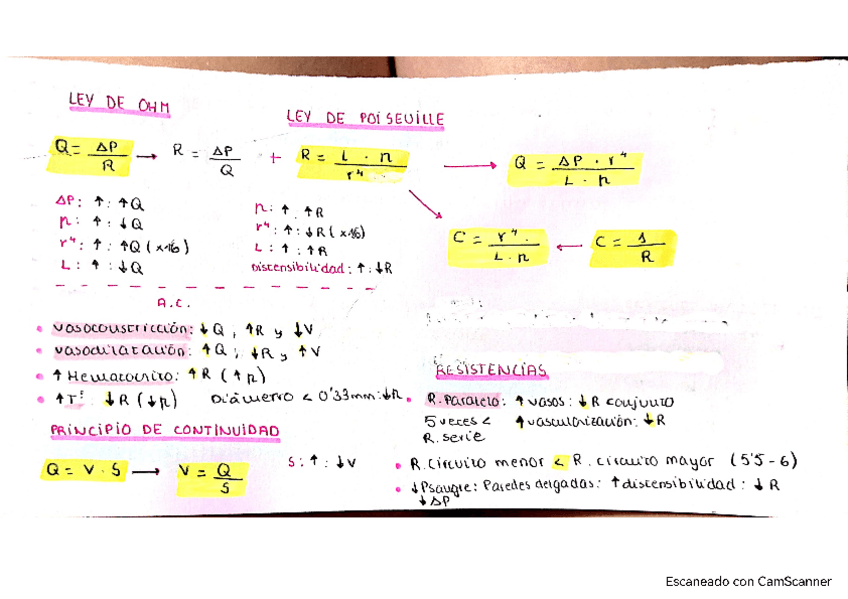 LEY DE OHM
LEY DE POISEUILLE
Q = ΔP / R → R = ΔP / Q + R = L · n / r⁴ → Q = ΔP · r⁴ / L · n
C = r⁴ / L · n ← C = 1 / R
ΔP: ↑ : ↑Q
n: ↑ : ↓Q
r⁴: ↑ : ↑Q (x16)
L: ↑ : ↓Q
n: ↑ : ↑R
r⁴: ↑ : ↓R (x16)
L: ↑ : ↑R
Discensibilidad: ↑ : ↓R
A.C.
• vasoconstricción: ↓Q, ↑R y ↓V
• vasodilatación: ↑Q, ↓R y ↑V
• ↑ Hematocrito: ↑R (↑n)
• ↑Tª: ↓R (↓n) Diámetro < 0'33mm: ↓R
PRINCIPIO DE CONTINUIDAD
Q = V · S → V = Q / S
S: ↑ : ↓V
RESISTENCIAS
• R. Paralelo: ↑ vasos: ↓R conjunto
5 veces < ↑ vascularización: ↓R
R. serie
• R. circuito menor < R. circuito mayor (5'5 - 6)
• ↓Psangre: Paredes delgadas: ↑ discensibilidad: ↓R
↓ΔP
Escaneado con CamScanner